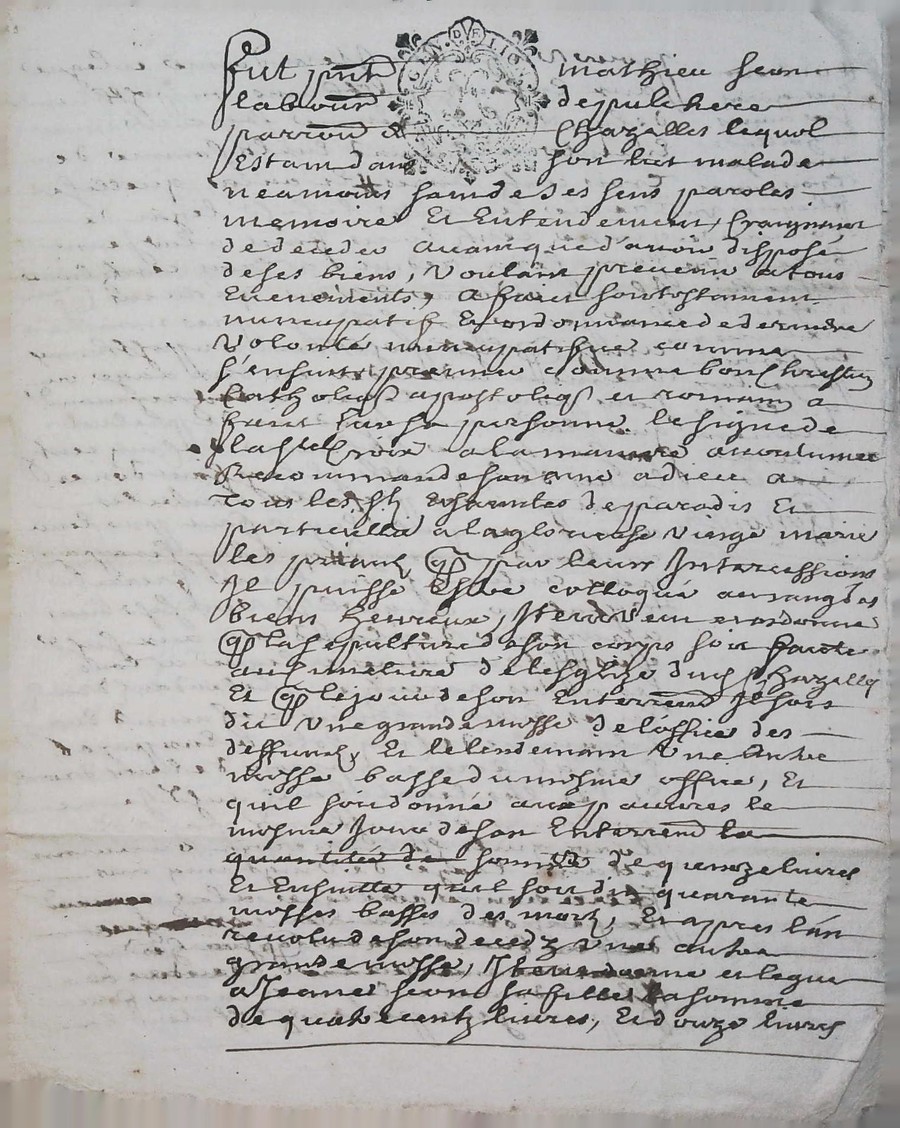 GEN. DE LION
Fut pnt mathieu Jean
laboureur de pulchere
parroisse de Chazelles lequel
Estant dans son lict malade
neamoins sain de ses sens parolles
memoire Et Entendement, Craignant
de deceder avant que d'avoir disposé
de ses biens, Voulant prevenir a tous
Evenements, a faict son testament
nuncupatif Et ordonnance de derniere
Volonté nuncupatifve comme
s'ensuit, premier comme bon Chrestien
Catholiq apostoliq et romain a
faict sur sa personne le signe de
la ste Croix a la maniere accoutumee
Recommande son ame a dieu a
Tous les sts et sainctes de paradis Et
particullier a la glorieuse Vierge marie
les priant, q par leurs Intercessions
Il puisse Estre colloqué au rang des
bien heureux, Item Veut et ordonne
q la sepulture de son corps soit faicte
au cimetiere de l'esglize dud Chazelles
Et q le jour de son Enterremt Il soit
dit Une grande messe de l'office des
deffunts, Et le lendemain Une autre
messe basse du mesme office, Et
quil soit donné aux pauvres le
mesme Jour de son Enterremt la
quantité de somme de quinze livres
Et Ensuitte quil soit dit quarante
messes basses des morts, Et apres l'an
revolu de son decedz Une autre
grande messe, Item donne et legue
a Jeane Jean sa fille la somme
de quatre centz livres, Et douze livres